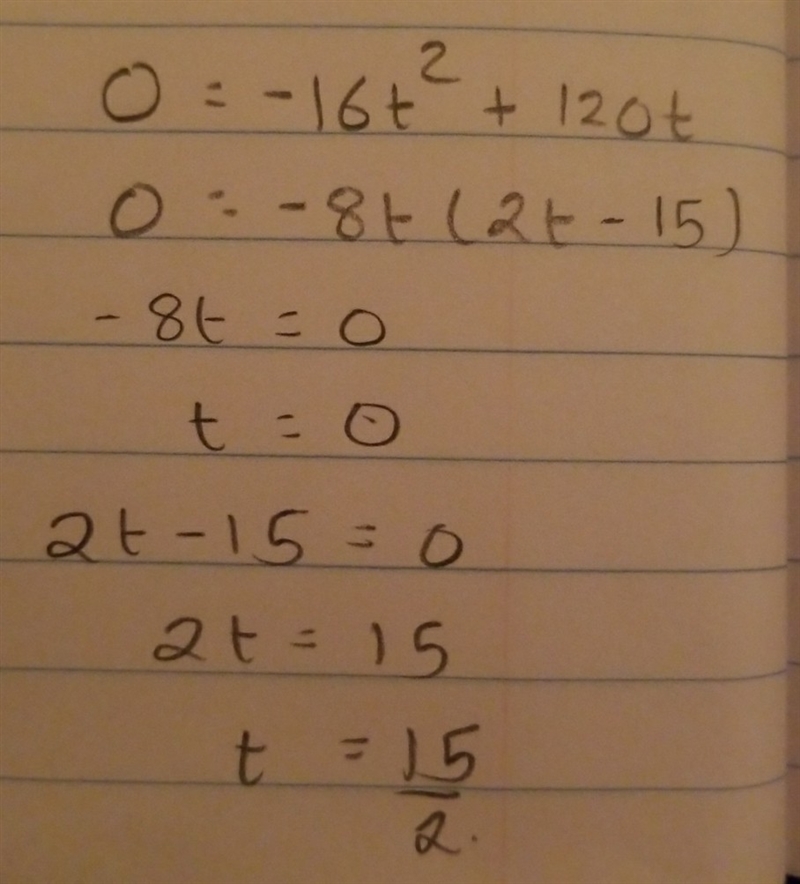 0 = -16t² + 120t
0 = -8t(2t - 15)
-8t = 0
t = 0
2t - 15 = 0
2t = 15
t = 15/2.